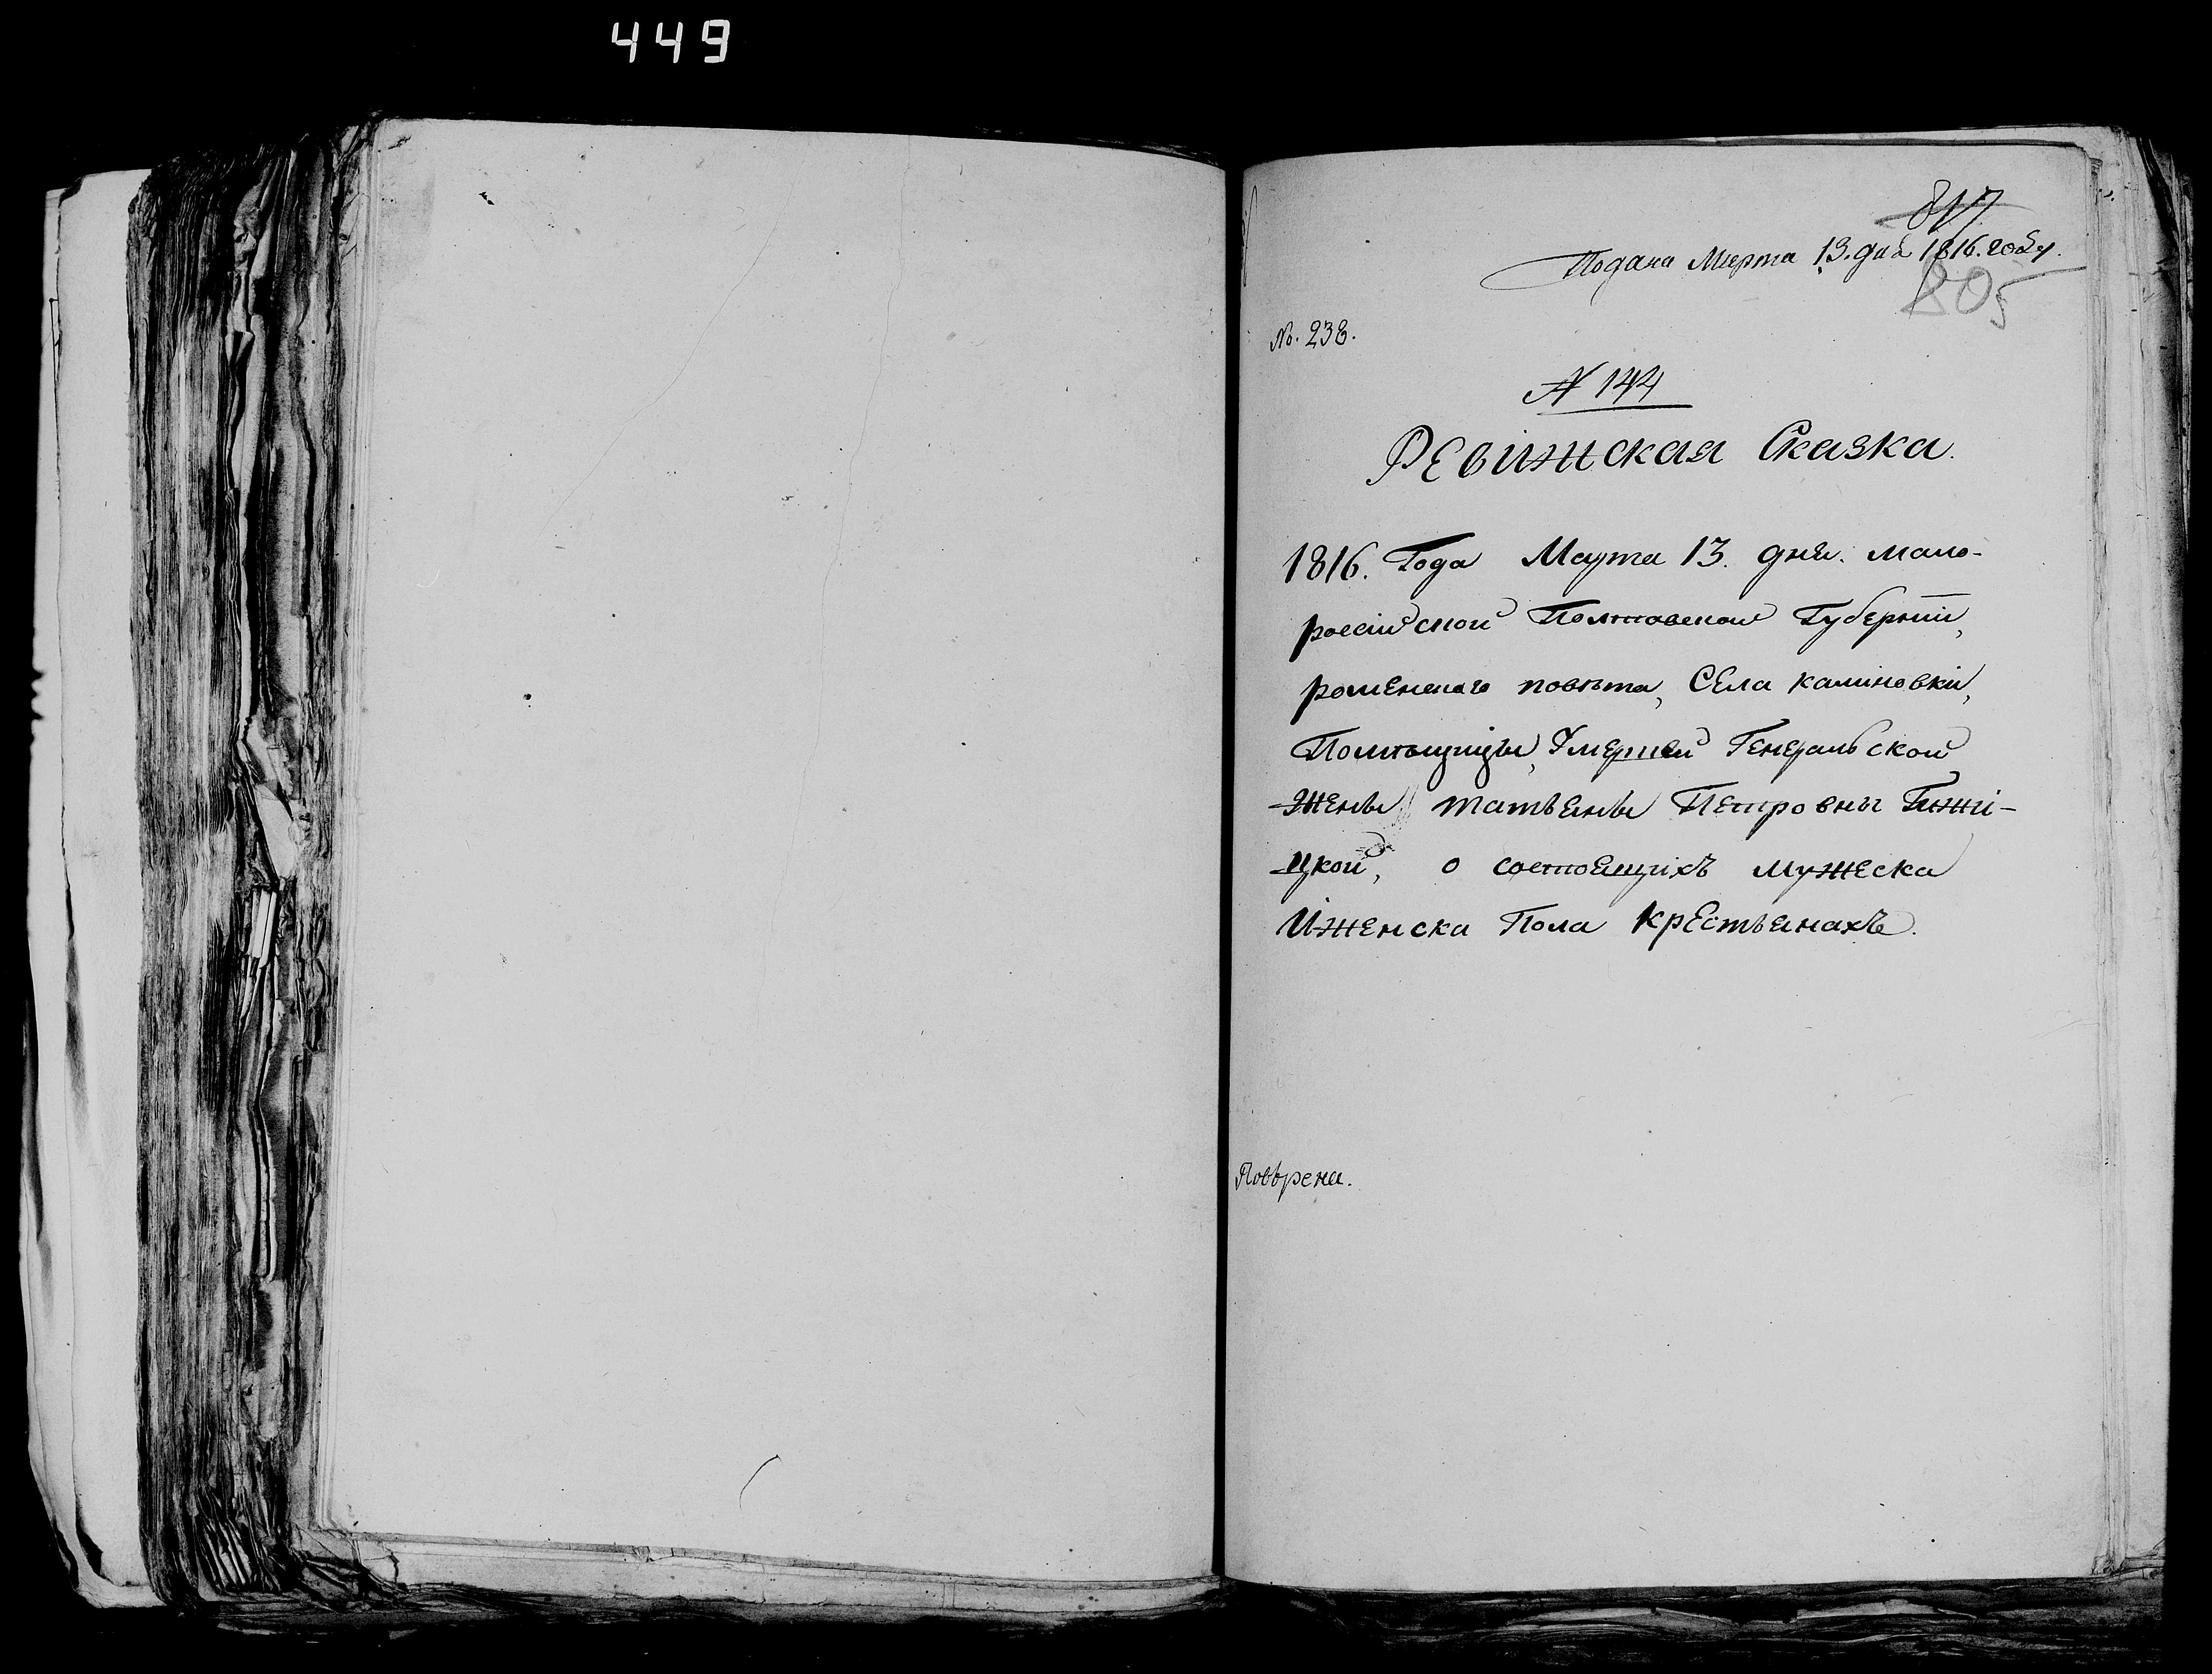 449
817
Подана Марта 13. дня 1816. году.
805
No. 238.
N 144
Ревіжская Сказка.
1816. Года Марта 13. дня. мало-
російской Полтавской Губерніи,
роменскаго повѣта, Села калиновки,
Помѣщицы, Умершей Генеральской
Жены татьяны Петровны Гижи-
цкой, о состоящихъ мужеска
И женска Пола крестьянахъ.
Повѣрена.